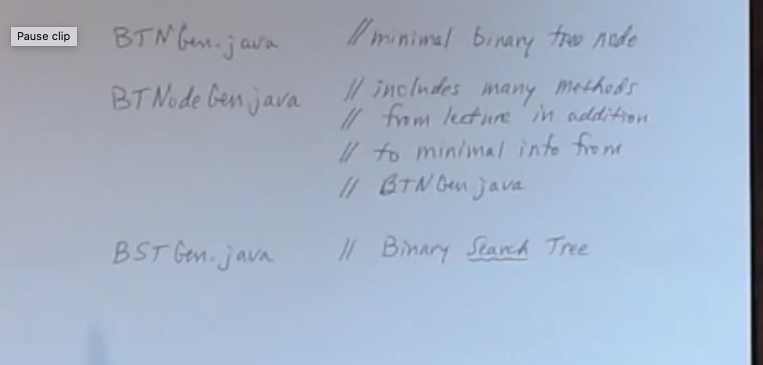 Pause clip
BTNGen.java //minimal binary tree node
BTNodeGen.java // includes many methods
// from lecture in addition
// to minimal info from
// BTNGen.java
BSTGen.java // Binary Search Tree